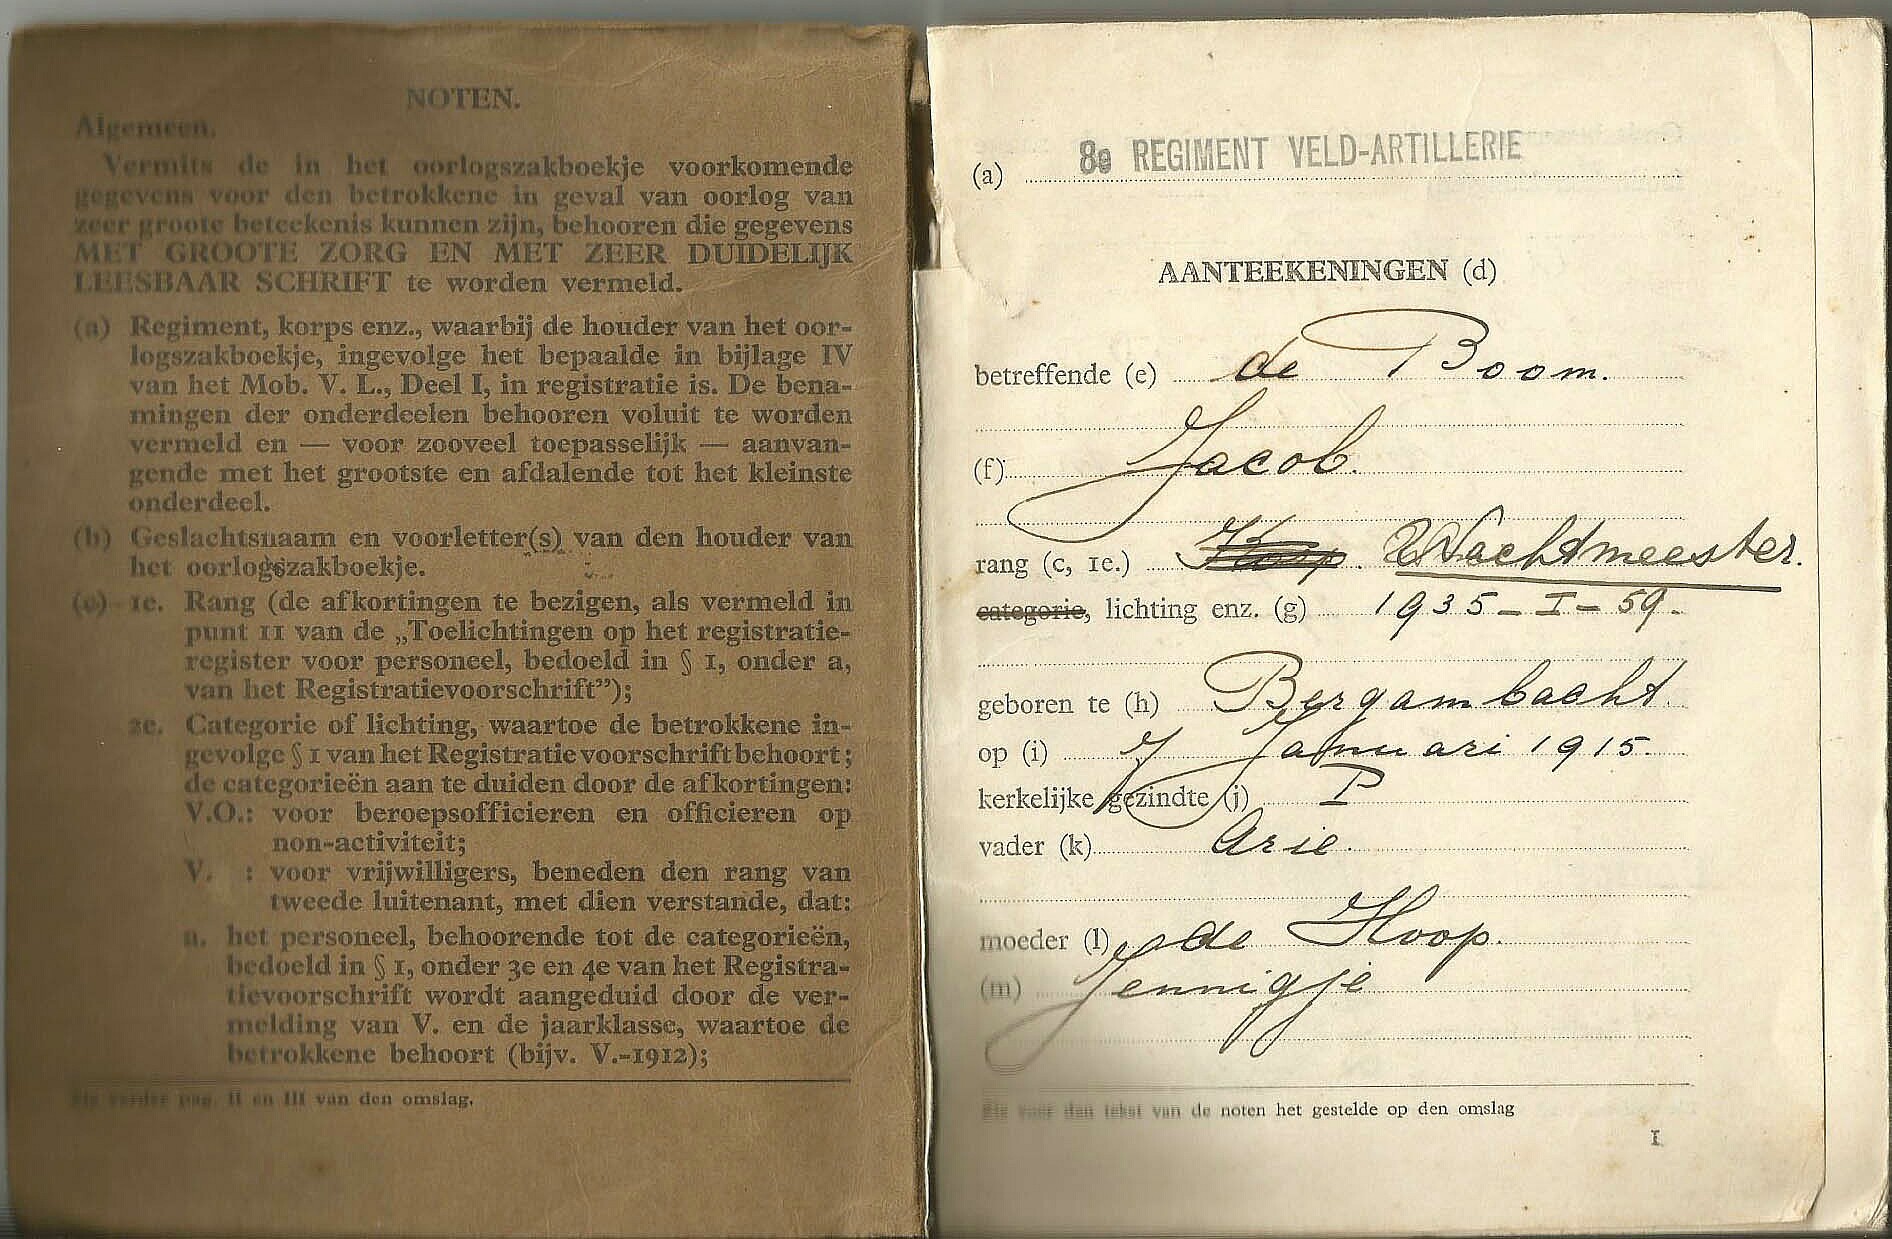 NOTEN.
Algemeen.
Vermits de in het oorlogszakboekje voorkomende
gegevens voor den betrokkene in geval van oorlog van
zeer groote beteekenis kunnen zijn, behooren die gegevens
MET GROOTE ZORG EN MET ZEER DUIDELIJK
LEESBAAR SCHRIFT te worden vermeld.
(a) Regiment, korps enz., waarbij de houder van het oor-
logszakboekje, ingevolge het bepaalde in bijlage IV
van het Mob. V. L., Deel I, in registratie is. De bena-
mingen der onderdeelen behooren voluit te worden
vermeld en — voor zooveel toepasselijk — aanvan-
gende met het grootste en afdalende tot het kleinste
onderdeel.
(b) Geslachtsnaam en voorletter(s) van den houder van
het oorlogszakboekje.
(c) 1e. Rang (de afkortingen te bezigen, als vermeld in
punt 11 van de „Toelichtingen op het registratie-
register voor personeel, bedoeld in § 1, onder a,
van het Registratievoorschrift”);
2e. Categorie of lichting, waartoe de betrokkene in-
gevolge § 1 van het Registratievoorschrift behoort;
de categorieën aan te duiden door de afkortingen:
V.O.: voor beroepsofficieren en officieren op
non-activiteit;
V. : voor vrijwilligers, beneden den rang van
tweede luitenant, met dien verstande, dat:
a. het personeel, behoorende tot de categorieën,
bedoeld in § 1, onder 3e en 4e van het Registra-
tievoorschrift wordt aangeduid door de ver-
melding van V. en de jaarklasse, waartoe de
betrokkene behoort (bijv. V.-1912);
Zie verder pag. II en III van den omslag.
(a) 8e REGIMENT VELD-ARTILLERIE
AANTEEKENINGEN (d)
betreffende (e) de Boom.
(f) Jacob.
rang (c, 1e.) Korp. Wachtmeester.
categorie, lichting enz. (g) 1935-I-59.
geboren te (h) Bergambacht.
op (i) 7 Januari 1915.
kerkelijke gezindte (j) P
vader (k) Arie.
moeder (l) de Hoop.
(m) Jennigje
Zie voor den tekst van de noten het gestelde op den omslag
1